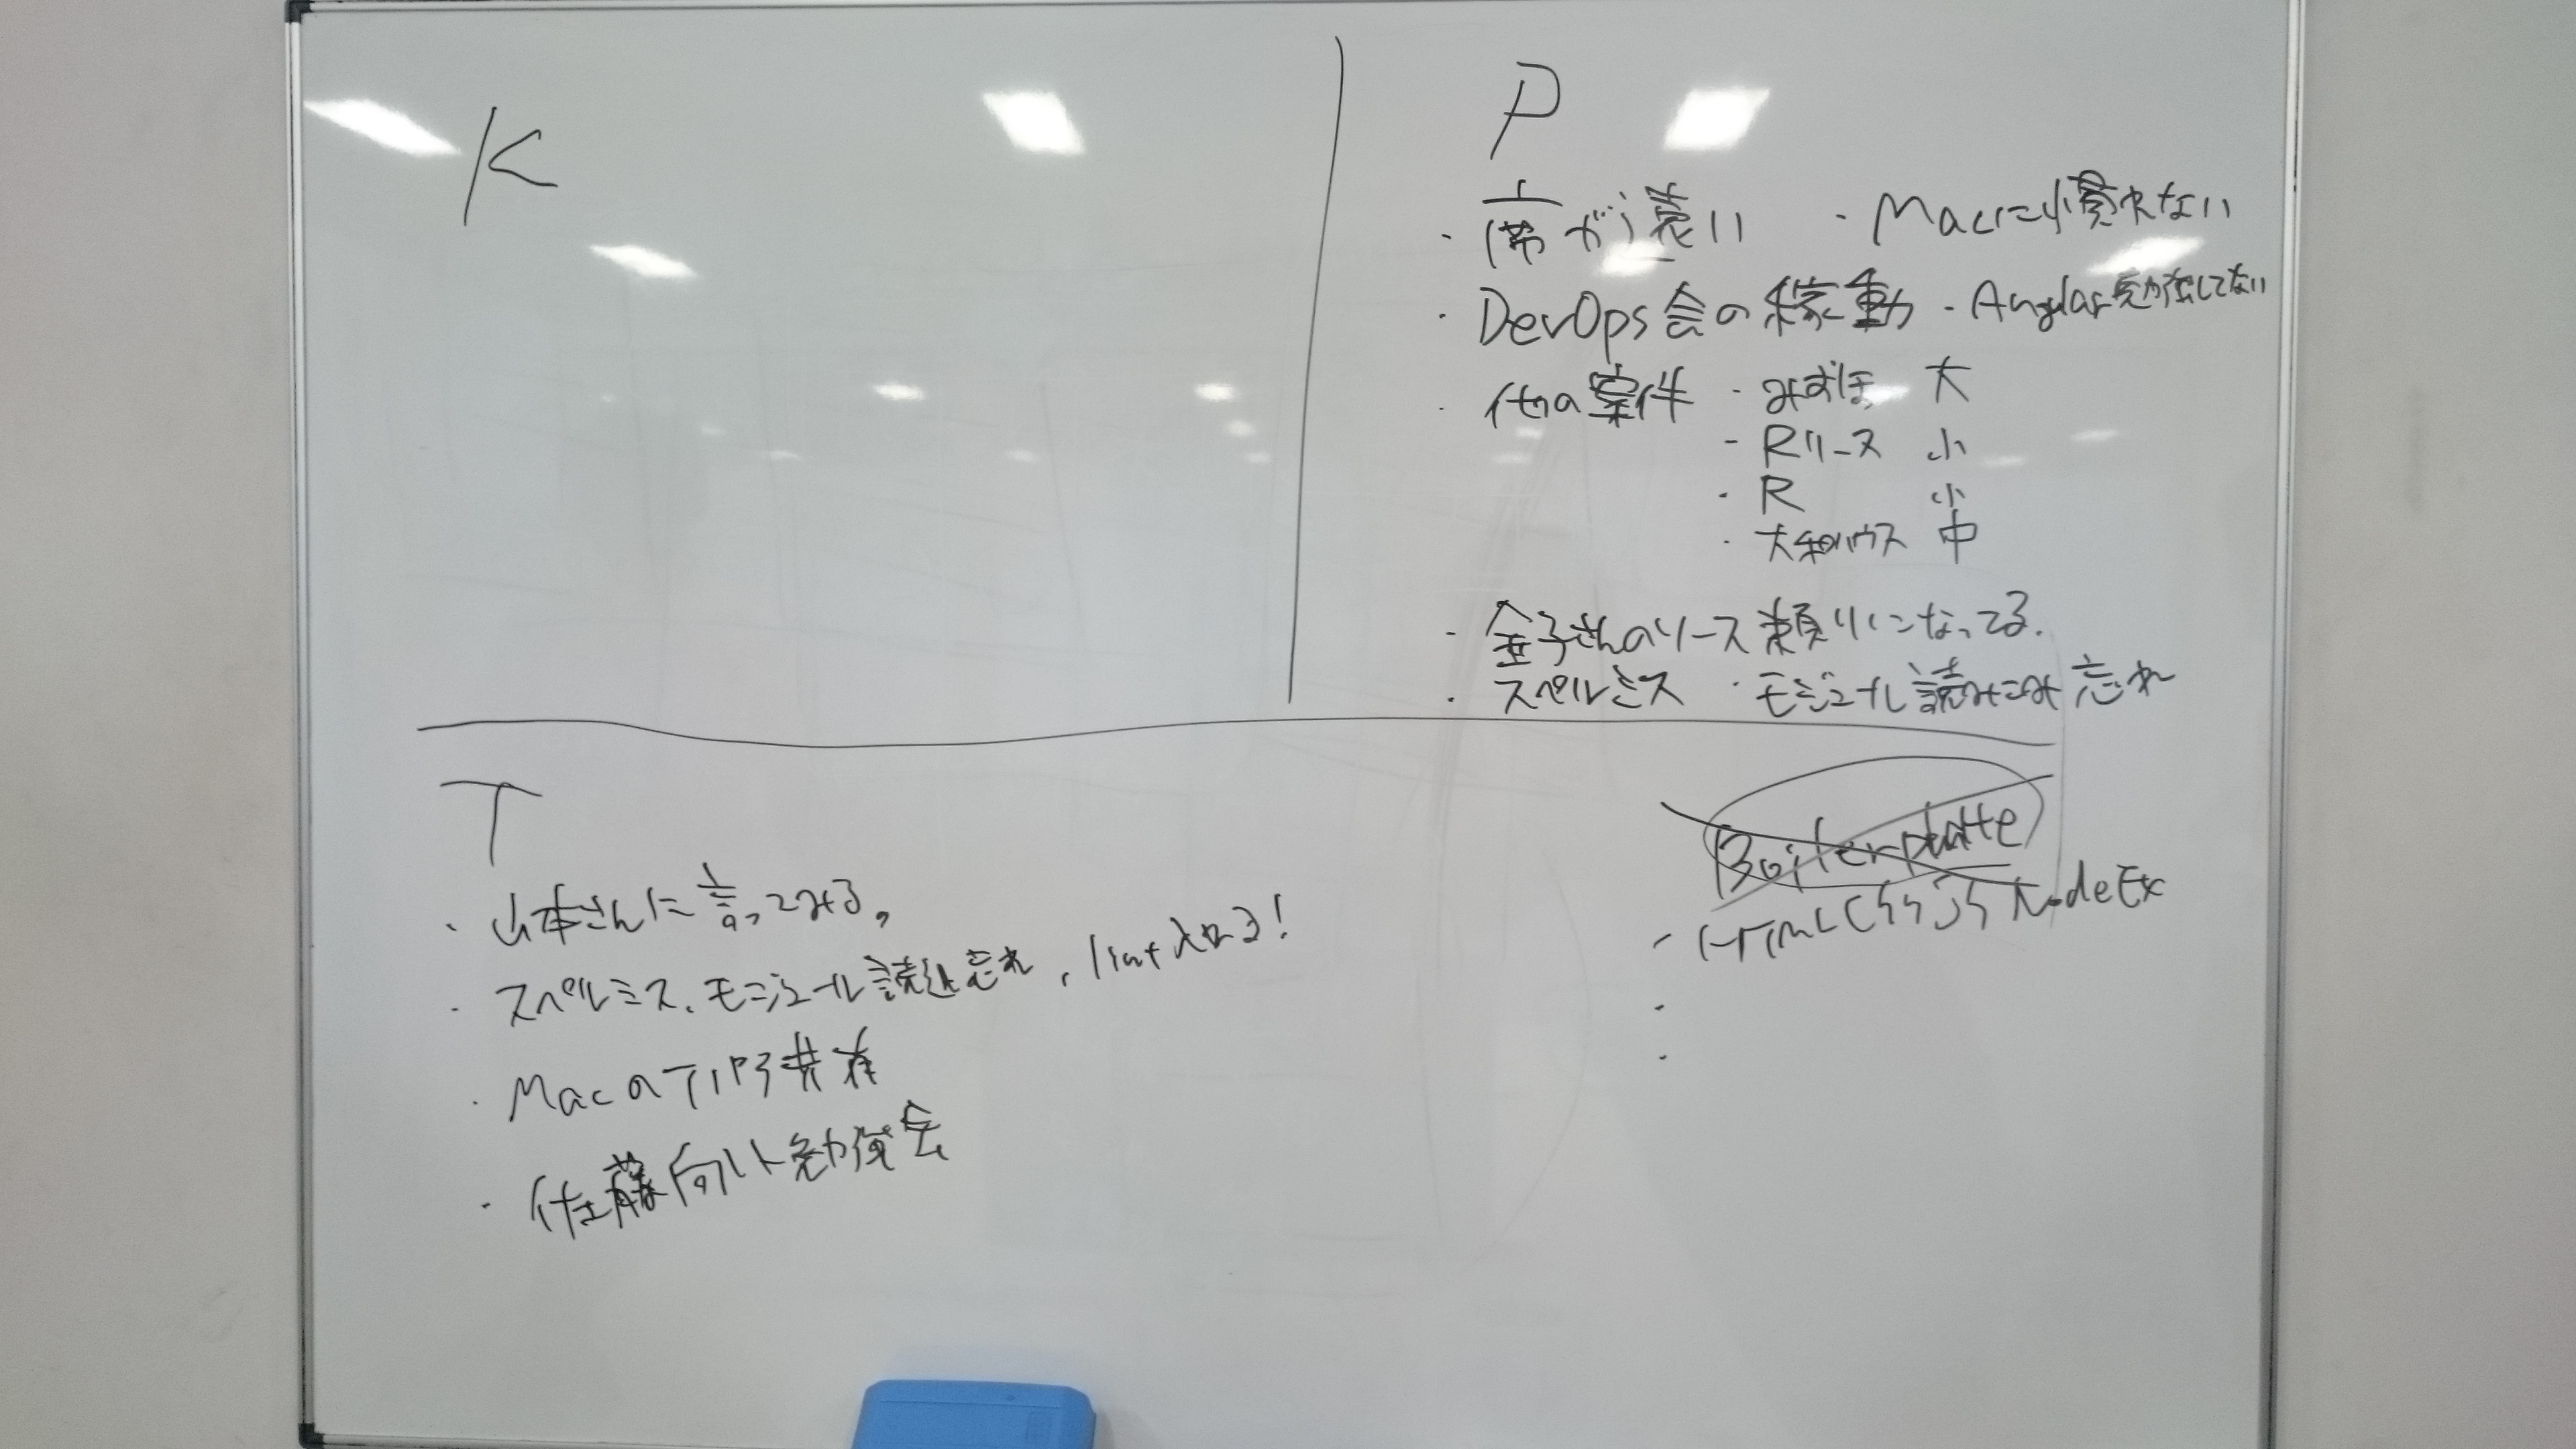 K
P
・席が遠い ・Macに慣れない
・DevOps会の稼動 ・Angular勉強してない
・他の案件 ・みずほ 大
・Rリース 小
・R 小
・大和ハウス 中
・金子さんのソース頼りになってる.
・スペルミス ・モジュール読みこみ忘れ
T
・山本さんに言ってみる。
・スペルミス、モジュール読込忘れ、lint入れる!
・MacのTIPS共有
・佐藤向け勉強会
Boilerplatte
・HTML CSS JS Node Ex
・
・